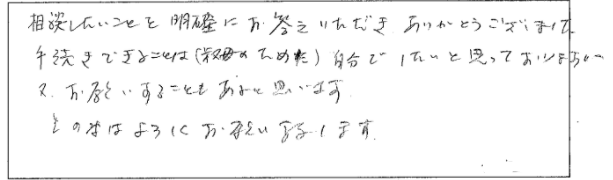 相談したいことを明確にお答えいただきありがとうございました
手続きできることは(叔母のため)自分でしたいと思っておりますが
又、お願いすることもあると思います。
その時はよろしくお願い致します。